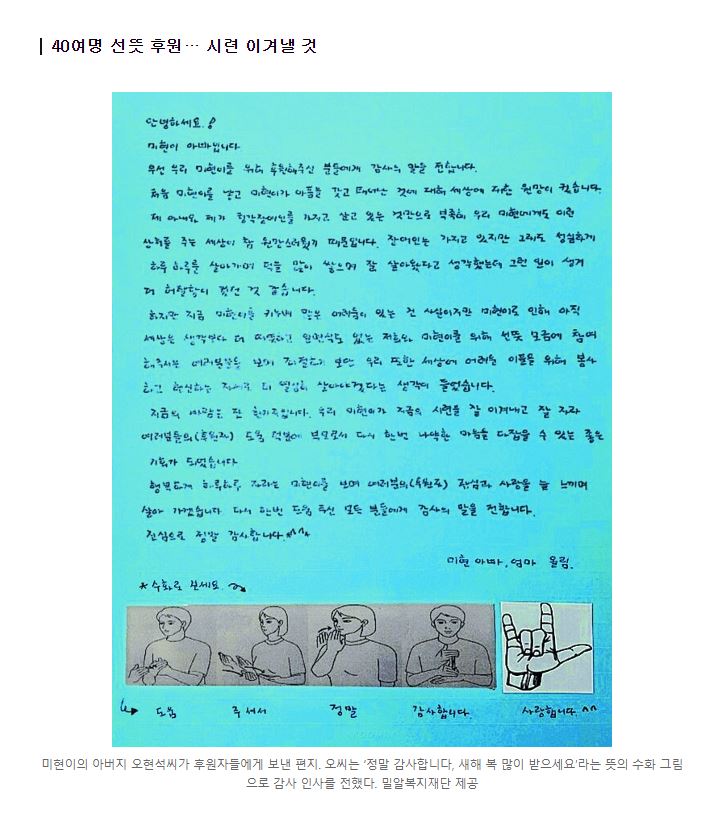 40여명 선뜻 후원… 시련 이겨낼 것
안녕하세요!
미현이 아빠입니다
우선 우리 미현이를 위해 후원해주신 분들에게 감사의 말을 전합니다.
처음 미현이를 낳고 미현이가 아픔을 갖고 태어난 것에 대해 세상에 대한 원망이 컸습니다.
제 아내와 제가 청각장애인를 가지고 살고 있는 것만으로 부족해 우리 미현에게도 이런
산허를 주는 세상이 참 원망스러웠기 때문입니다. 장애인는 가지고 있지만 그래도 성실하게
하루 하루를 살아가며 덕을 많이 쌓으며 잘 살아왔다고 생각했는데 그런 일이 생겨
더 허탈함이 컸던 것 같습니다.
하지만 지금 미현이를 키우며 많은 어려움이 있는 건 사실이지만 미현이로 인해 아직
세상은 생각보다 더 따뜻하고 일면식도 없는 저희와 미현이를 위해 선뜻 모금에 참여
해주시는 여러분들을 보며 좌절하기 보단 우리 또한 세상에 어려운 이들을 위해 봉사
하고 헌신하는 자세로 더 열심히 살아야겠다는 생각이 들었습니다.
지금의 바람은 딴 한가지입니다. 우리 미현이가 지금의 시련을 잘 이겨내고 잘 자라
여러분들의(후원자) 도움 덕분에 부모로서 다시 한번 나약한 마음을 다잡을 수 있는 좋은
기회가 되었습니다
행복하게 하루하루 자라는 미현이를 보며 여러분의(후원자) 진심과 사랑을 늘 느끼며
살아 가겠습니다 다시 한번 도움 주신 모든 분들에게 감사의 말을 전합니다.
진심으로 정말 감사합니다.*^^*
미현 아빠, 엄마 올림.
*수화로 보세요.
도움 주셔서 정말 감사합니다. 사랑합니다.^^
미현이의 아버지 오현석씨가 후원자들에게 보낸 편지. 오씨는 '정말 감사합니다, 새해 복 많이 받으세요'라는 뜻의 수화 그림
으로 감사 인사를 전했다. 밀알복지재단 제공